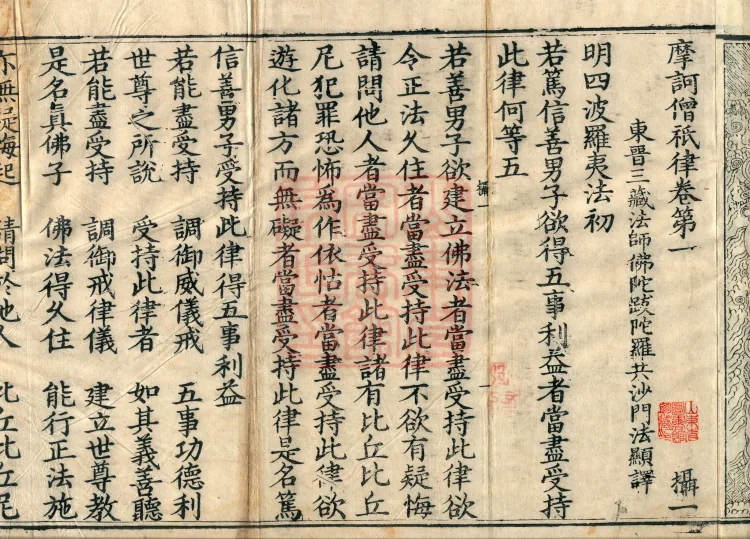 摩訶僧祇律卷第一 攝一
東晉三藏法師佛陀跋陀羅共沙門法顯譯
明四波羅夷法初
若篤信善男子欲得五事利益者當盡受持
此律何等五
攝一
若善男子欲建立佛法者當盡受持此律欲
令正法久住者當盡受持此律不欲有疑悔
請問他人者當盡受持此律諸有比丘比丘
尼犯罪恐怖爲作依怙者當盡受持此律欲
遊化諸方而無礙者當盡受持此律是名篤
信善男子受持此律得五事利益
若能盡受持 調御威儀戒 五事功德利
世尊之所說 受持此律者 如其義善聽
若能盡受持 調御戒律儀 建立世尊教
是名眞佛子 佛法得久住 能行正法施
亦無疑悔起 請問於他人 比丘比丘尼